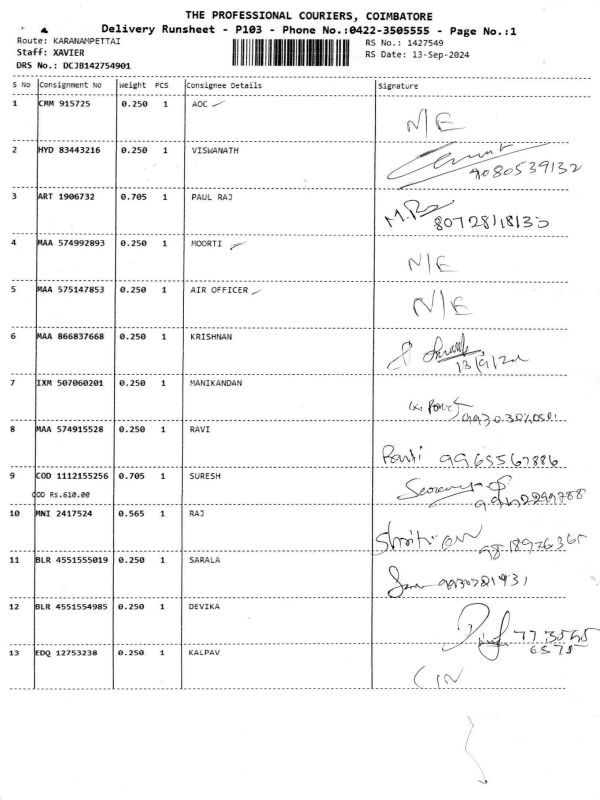 THE PROFESSIONAL COURIERS, COIMBATORE
Delivery Runsheet - P103 - Phone No.:0422-3505555 - Page No.:1
Route: KARANAMPETTAI
RS No.: 1427549
Staff: XAVIER
RS Date: 13-Sep-2024
DRS No.: DCJB142754901
S No Consignment No Weight PCS Consignee Details Signature
1 CMM 915725 0.250 1 AOC
N/E
2 HYD 83443216 0.250 1 VISWANATH
9080539132
3 ART 1906732 0.705 1 PAUL RAJ
4 MAA 574992893 0.250 1 MOORTI
N/E
5 MAA 575147853 0.250 1 AIR OFFICER
N/E
6 MAA 866837668 0.250 1 KRISHNAN
13/9/24
7 IXM 507060201 0.250 1 MANIKANDAN
8 MAA 574915528 0.250 1 RAVI
9965567886
9 COD 1112155256 0.705 1 SURESH
COD Rs.610.00
10 MNI 2417524 0.565 1 RAJ
11 BLR 4551555019 0.250 1 SARALA
12 BLR 4551554985 0.250 1 DEVIKA
77 3555
6575
13 EDQ 12753238 0.250 1 KALPAV